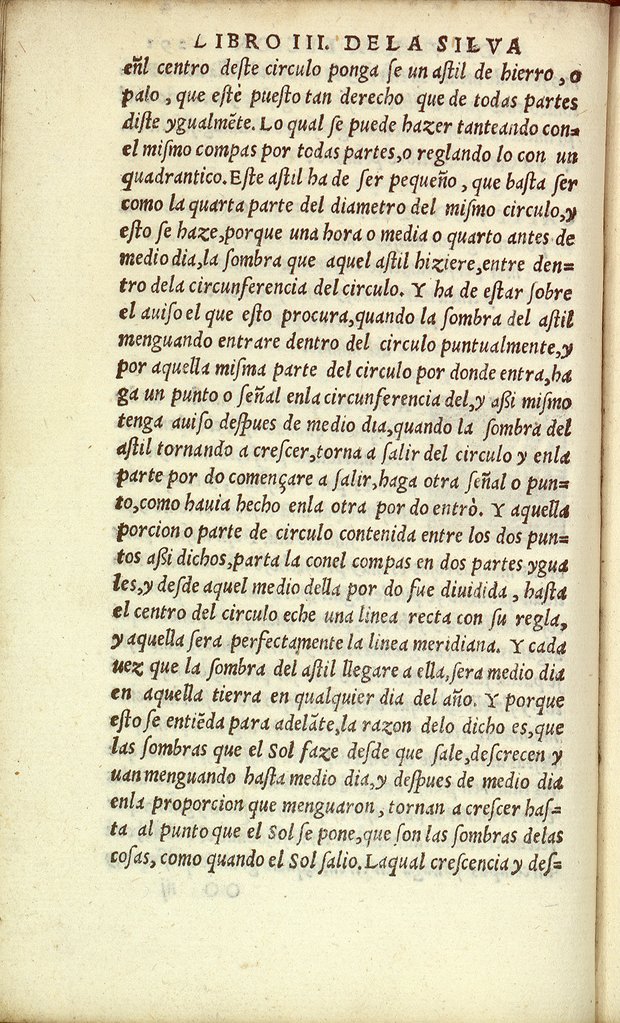 LIBRO III. DELA SILVA
eñl centro deſte circulo ponga ſe un aſtil de hierro, o
palo, que eſtè pueſto tan derecho que de todas partes
diſte ygualmẽte. Lo qual ſe puede hazer tanteando con=
el miſmo compas por todas partes, o reglando lo con un
quadrantico. Eſte aſtil ha de ſer pequeño, que baſta ſer
como la quarta parte del diametro del miſmo circulo, y
eſto ſe haze, porque una hora o media o quarto antes de
medio dia, la ſombra que aquel aſtil hiziere, entre den=
tro dela circunferencia del circulo. Y ha de eſtar ſobre
el auiſo el que eſto procura, quando la ſombra del aſtil
menguando entrare dentro del circulo puntualmente, y
por aquella miſma parte del circulo por donde entra, ha
ga un punto o ſeñal enla circunferencia del, y aßi miſmo
tenga auiſo deſpues de medio dia, quando la ſombra del
aſtil tornando a creſcer, torna a ſalir del circulo y enla
parte por do començare a ſalir, haga otra ſeñal o pun=
to, como hauia hecho enla otra por do entrò. Y aquella
porcion o parte de circulo contenida entre los dos pun=
tos aßi dichos, parta la conel compas en dos partes ygua
les, y deſde aquel medio della por do fue diuidida, haſta
el centro del circulo eche una linea recta con ſu regla,
y aquella ſera perfectamente la linea meridiana. Y cada
uez que la ſombra del aſtil llegare a ella, ſera medio dia
en aquella tierra en qualquier dia del año. Y porque
eſto ſe entiẽda para adelãte, la razon delo dicho es, que
las ſombras que el Sol faze deſde que ſale, deſcrecen y
uan menguando haſta medio dia, y deſpues de medio dia
enla proporcion que menguaron, tornan a creſcer haſ=
ta al punto que el Sol ſe pone, que ſon las ſombras delas
coſas, como quando el Sol ſalio. Laqual creſcencia y deſ=